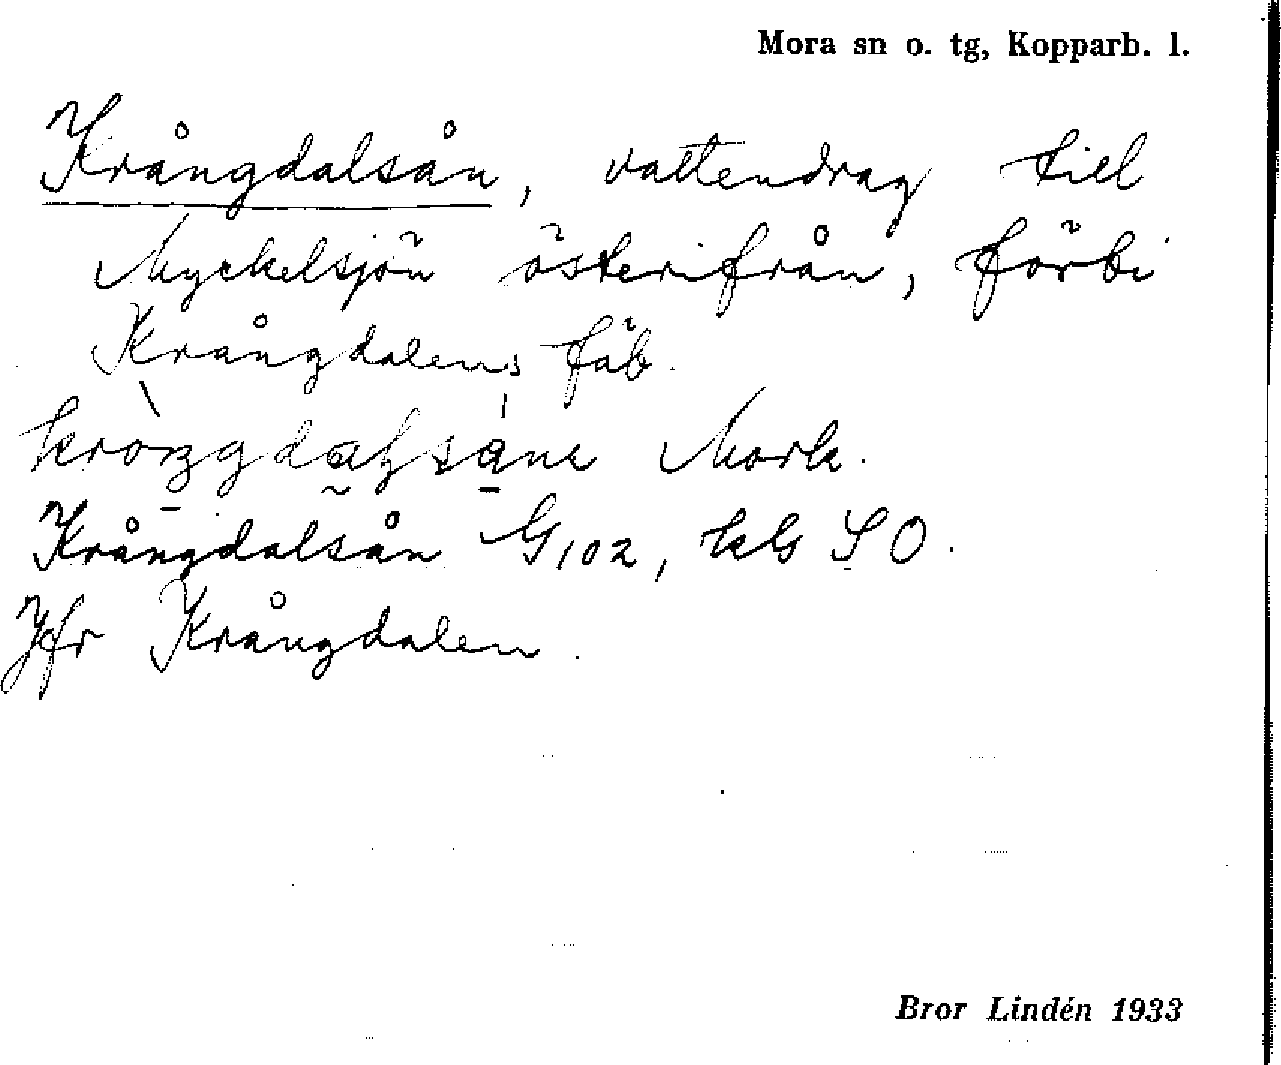 Mora sn o. tg, Kopparb. l.
Krångdalsån, vattendrag till
Myckelsjön österifrån, förbi
Krångdalens fäb.
Mork.
Krångdalsån G102, kb SO.
Jfr Krångdalen.
Bror Lindén 1933